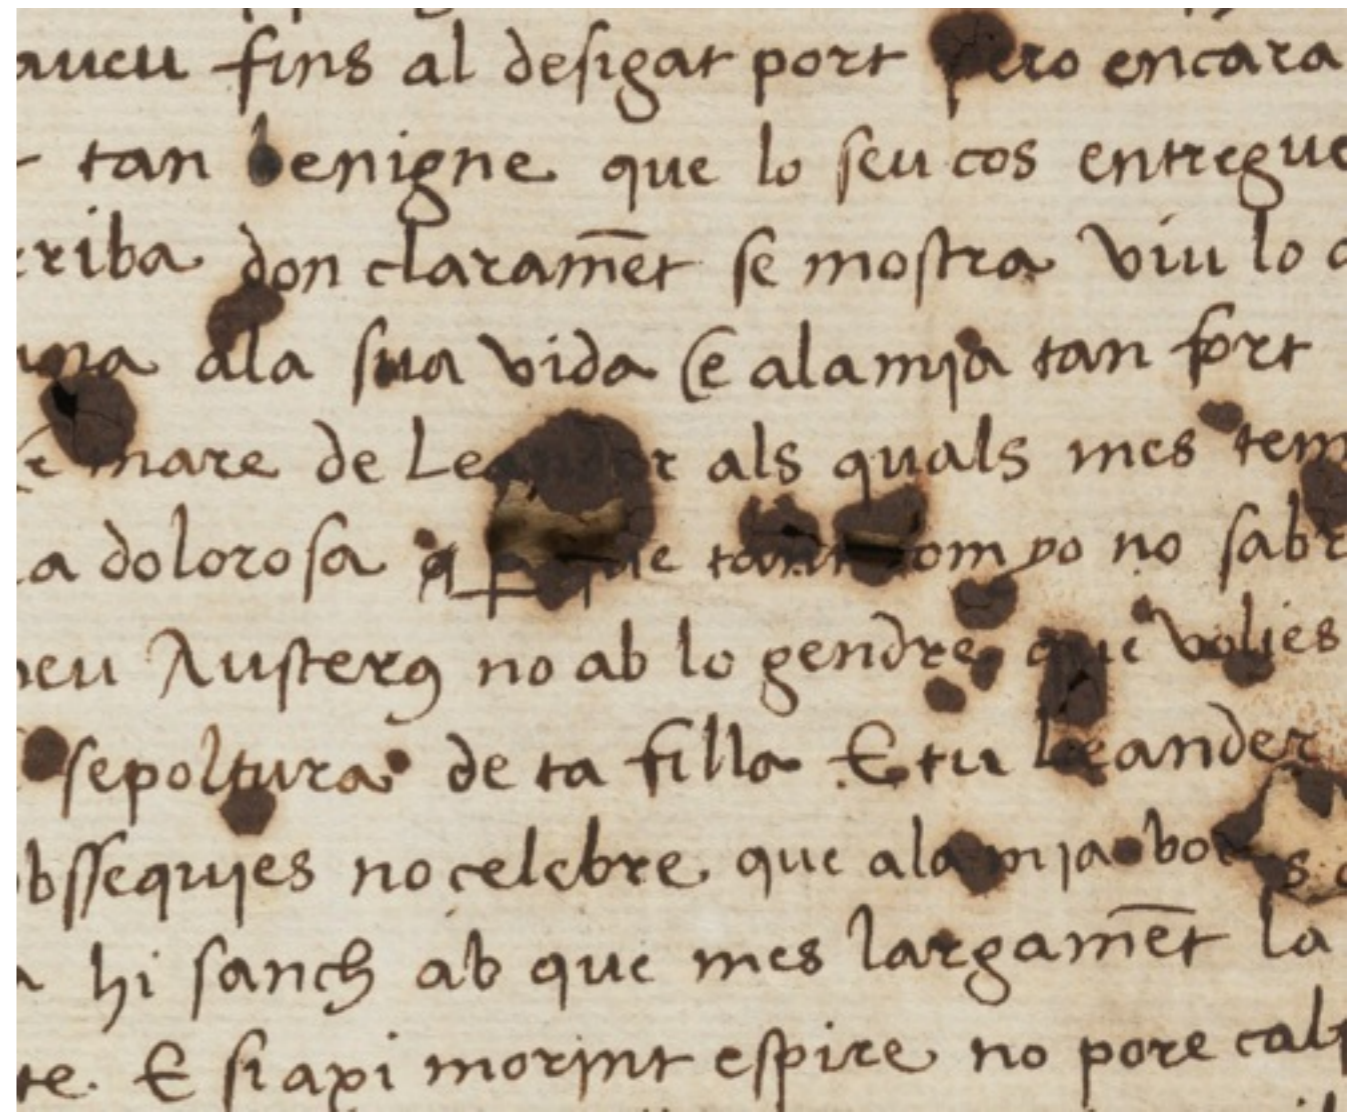 fins al desigat port pero encara
tan benigne que lo seu cos entregue
riba don claramēt se mostra viu lo
ala sua vida E alamja tan fort
mare de Leander als quals mes tem
a dolorosa tant com yo no sabr
Austerꝯ no ab lo gendre que volies
sepoltura de ta filla E tu Leander
bssequies no celebre que ala mja
hi sanch ab que mes largamēt la
te. E si axi morint espire no pore